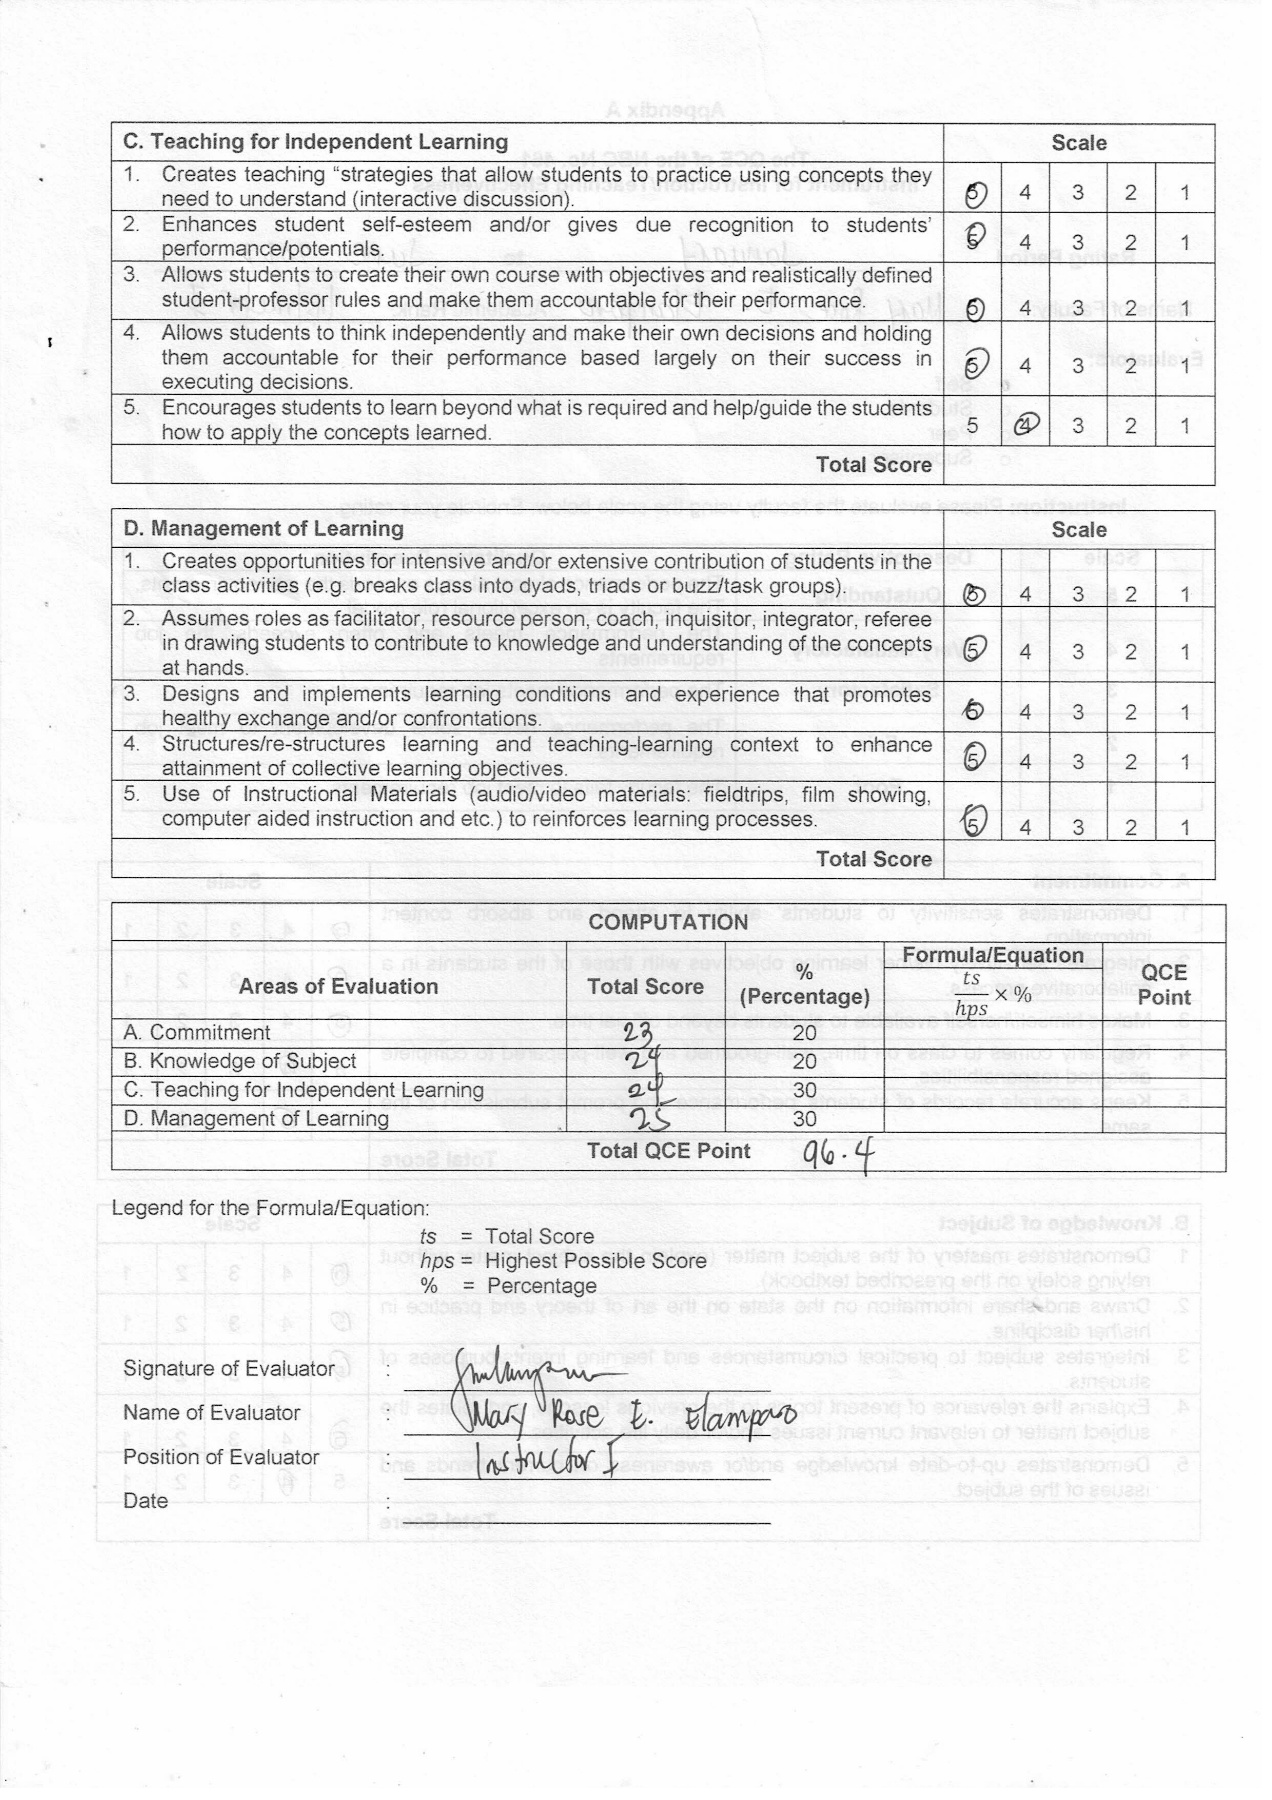 C. Teaching for Independent Learning Scale
1. Creates teaching “strategies that allow students to practice using concepts they
need to understand (interactive discussion). 5 4 3 2 1
2. Enhances student self-esteem and/or gives due recognition to students’
performance/potentials. 5 4 3 2 1
3. Allows students to create their own course with objectives and realistically defined
student-professor rules and make them accountable for their performance. 5 4 3 2 1
4. Allows students to think independently and make their own decisions and holding
them accountable for their performance based largely on their success in 5 4 3 2 1
executing decisions.
5. Encourages students to learn beyond what is required and help/guide the students
how to apply the concepts learned. 5 4 3 2 1
Total Score
D. Management of Learning Scale
1. Creates opportunities for intensive and/or extensive contribution of students in the
class activities (e.g. breaks class into dyads, triads or buzz/task groups). 5 4 3 2 1
2. Assumes roles as facilitator, resource person, coach, inquisitor, integrator, referee
in drawing students to contribute to knowledge and understanding of the concepts 5 4 3 2 1
at hands.
3. Designs and implements learning conditions and experience that promotes
healthy exchange and/or confrontations. 5 4 3 2 1
4. Structures/re-structures learning and teaching-learning context to enhance
attainment of collective learning objectives. 5 4 3 2 1
5. Use of Instructional Materials (audio/video materials: fieldtrips, film showing,
computer aided instruction and etc.) to reinforces learning processes. 5 4 3 2 1
Total Score
COMPUTATION
Areas of Evaluation Total Score % (Percentage) Formula/Equation ts/hps × % QCE Point
A. Commitment 23 20
B. Knowledge of Subject 24 20
C. Teaching for Independent Learning 24 30
D. Management of Learning 25 30
Total QCE Point 96.4
Legend for the Formula/Equation:
ts = Total Score
hps = Highest Possible Score
% = Percentage
Signature of Evaluator :
Name of Evaluator : Mary Rose E. Elamparo
Position of Evaluator : Instructor I
Date :